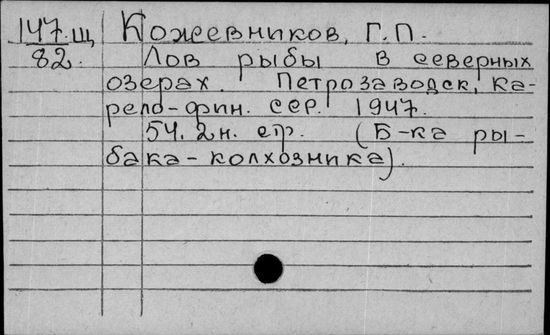 147.щ Кожевников, Г.П.
82. Лов рыбы в северных
озерах. Петрозаводск, Ка-
рело-фин. ССР. 1947.
54. 2н. стр. (Б-ка ры-
бака-колхозника).